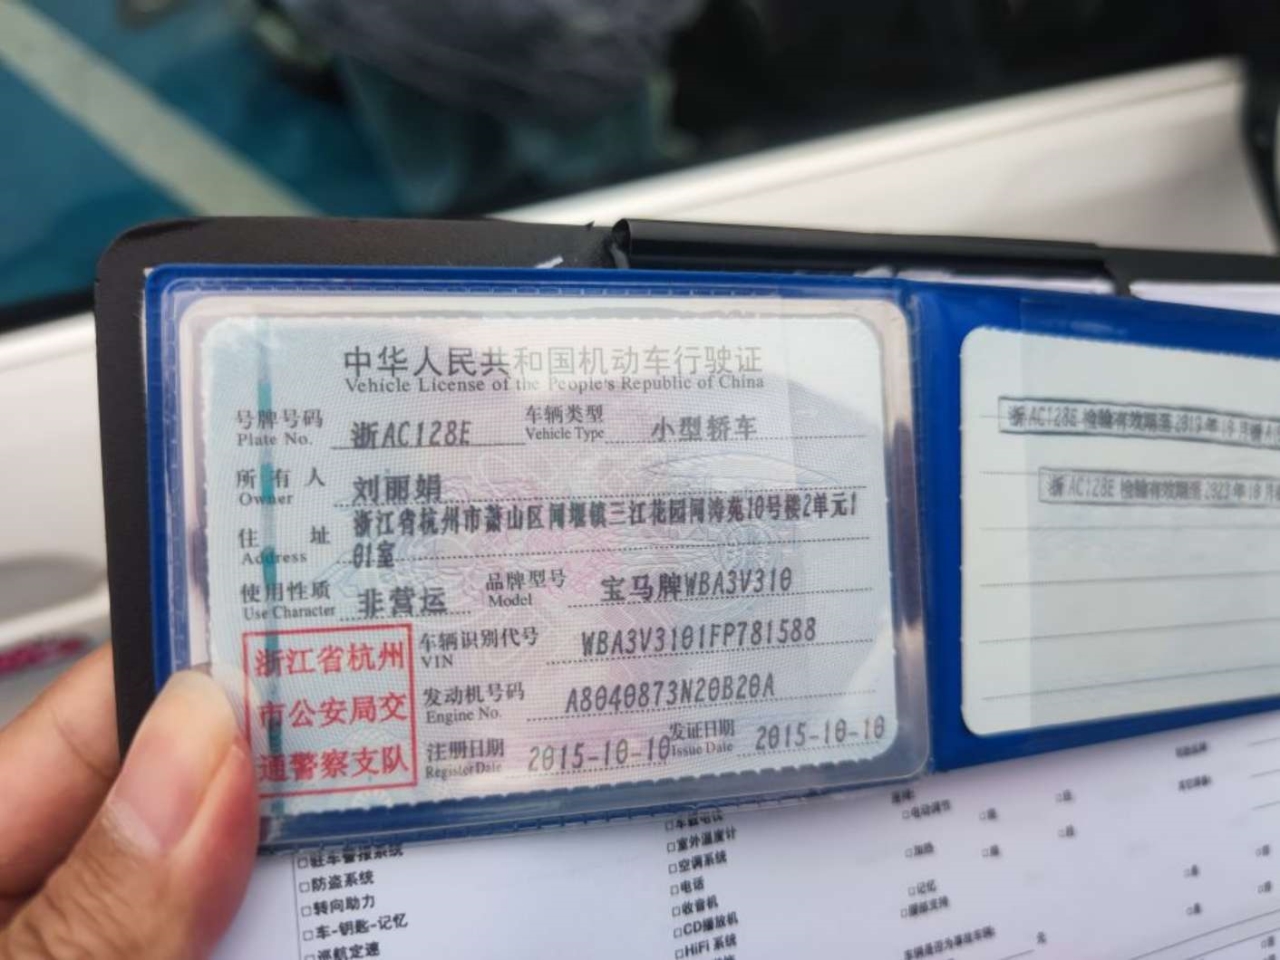 中华人民共和国机动车行驶证
Vehicle License of the People's Republic of China
号牌号码 浙AC128E 车辆类型 小型轿车
Plate No. Vehicle Type
所有人 刘丽娟
Owner
住址 浙江省杭州市萧山区闻堰镇三江花园闻涛苑10号楼2单元1
Address 01室
使用性质 非营运 品牌型号 宝马牌WBA3V310
Use Character Model
浙江省杭州
市公安局交
通警察支队
车辆识别代号 WBA3V3101FP781588
VIN
发动机号码 A8040873N20B20A
Engine No.
注册日期 2015-10-10 发证日期 2015-10-10
Register Date Issue Date
浙AC128E 检验有效期至
浙AC128E 检验有效期至2023年10月
□驻车警报系统
□防盗系统
□转向助力
□车-钥匙-记忆
□巡航定速
□车载电话
□室外温度计
□空调系统
□电话
□收音机
□CD播放机
□HiFi 系统
□电动调节
□加热
□记忆
□腰部支持